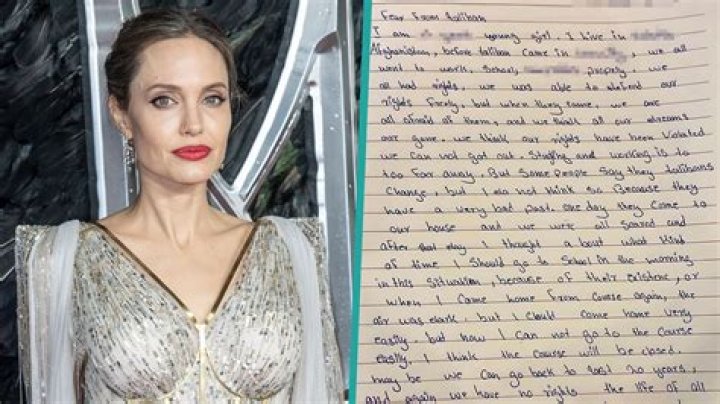 Fear From Taliban
I am a young girl. I live in
Afghanistan, before taliban came in, we all
went to work, School, properly. we
all had rights, we was able to defend our
rights freely, but when they came, we are
all afraid of them, and we think all our dreams
are gone. we think our rights have been violated
we can not got out. Studying and working is to
too far away. But Some people say they talibans
change, but I do not think so Because they
have a very bad past. one day they came to
our house and we were all Scared and
after that day I thought a bout what kind
of time I Should go to School In the morning
in this situation, because of their existence, or
when I came home From course again, the
air was dark, but I could come home very
easily. but now I can not go to the course
easily. I think the course will be closed.
may be we can go back to last 20 years,
and again we have no rights the life of all